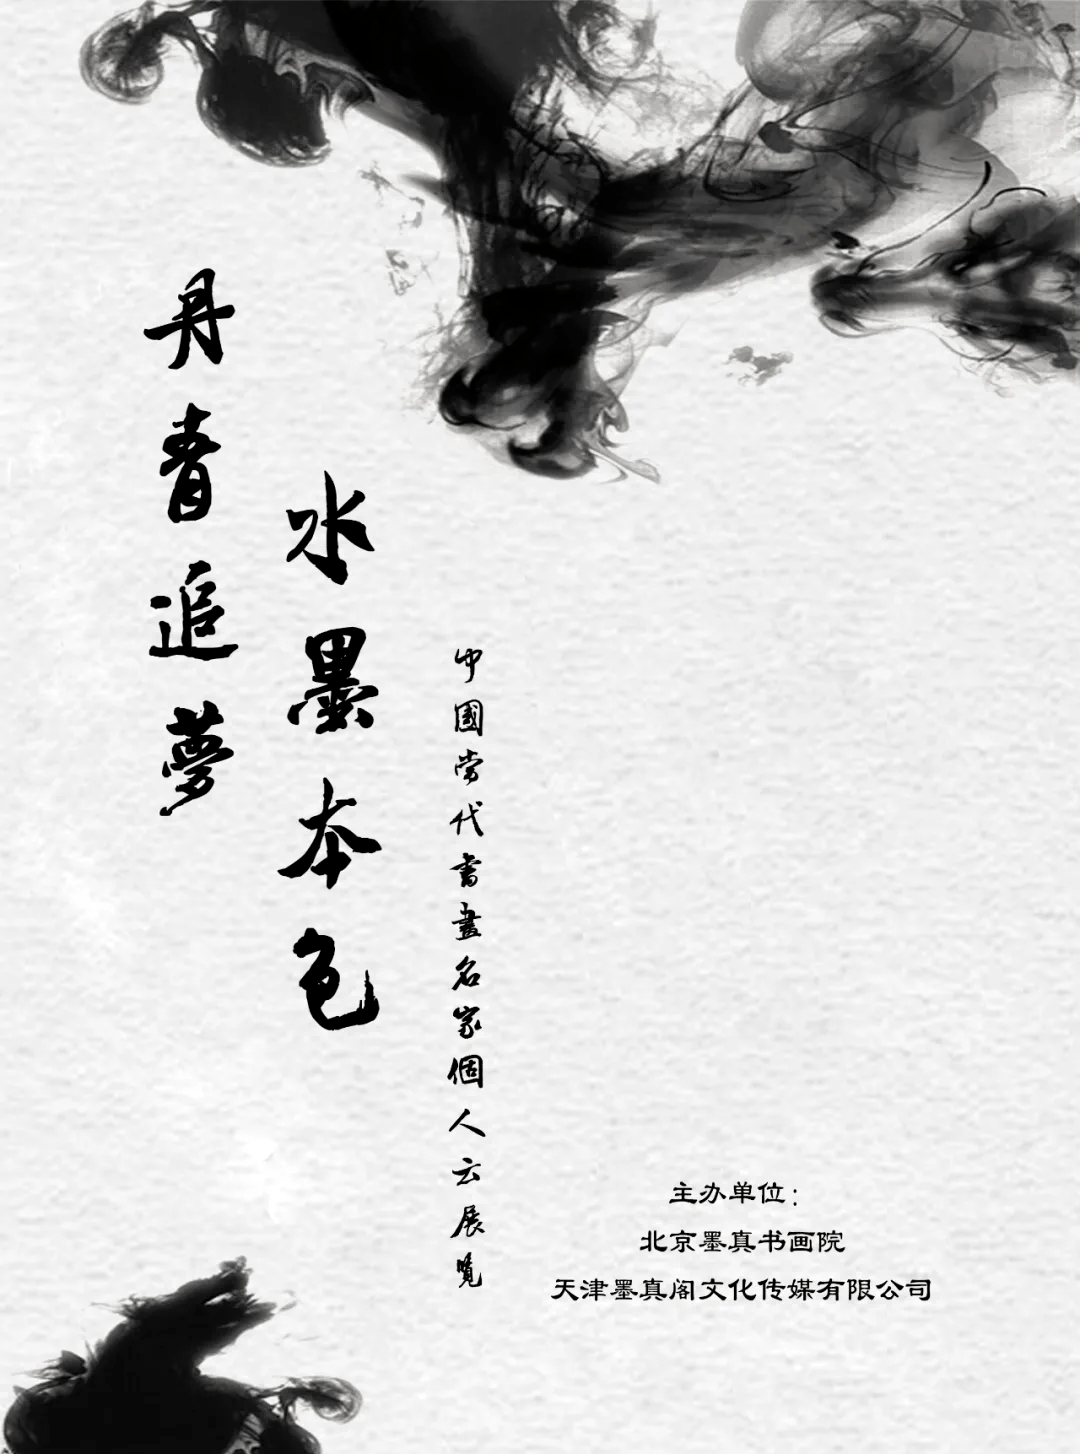 丹青追夢
水墨本色
中國當代書畫名家個人云展覽
主办单位：
北京墨真书画院
天津墨真阁文化传媒有限公司